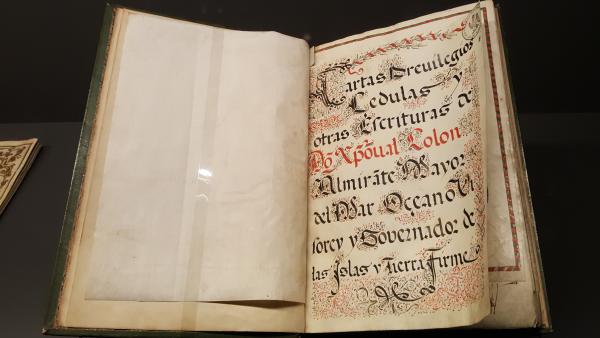 Cartas Preuilegios
Cedulas y
otras Escrituras de
Dõ Xpõual Colon
Almirãte Mayor
del Mar Oçeano Vi
sorey y Governador de
las Islas y Tierra Firme